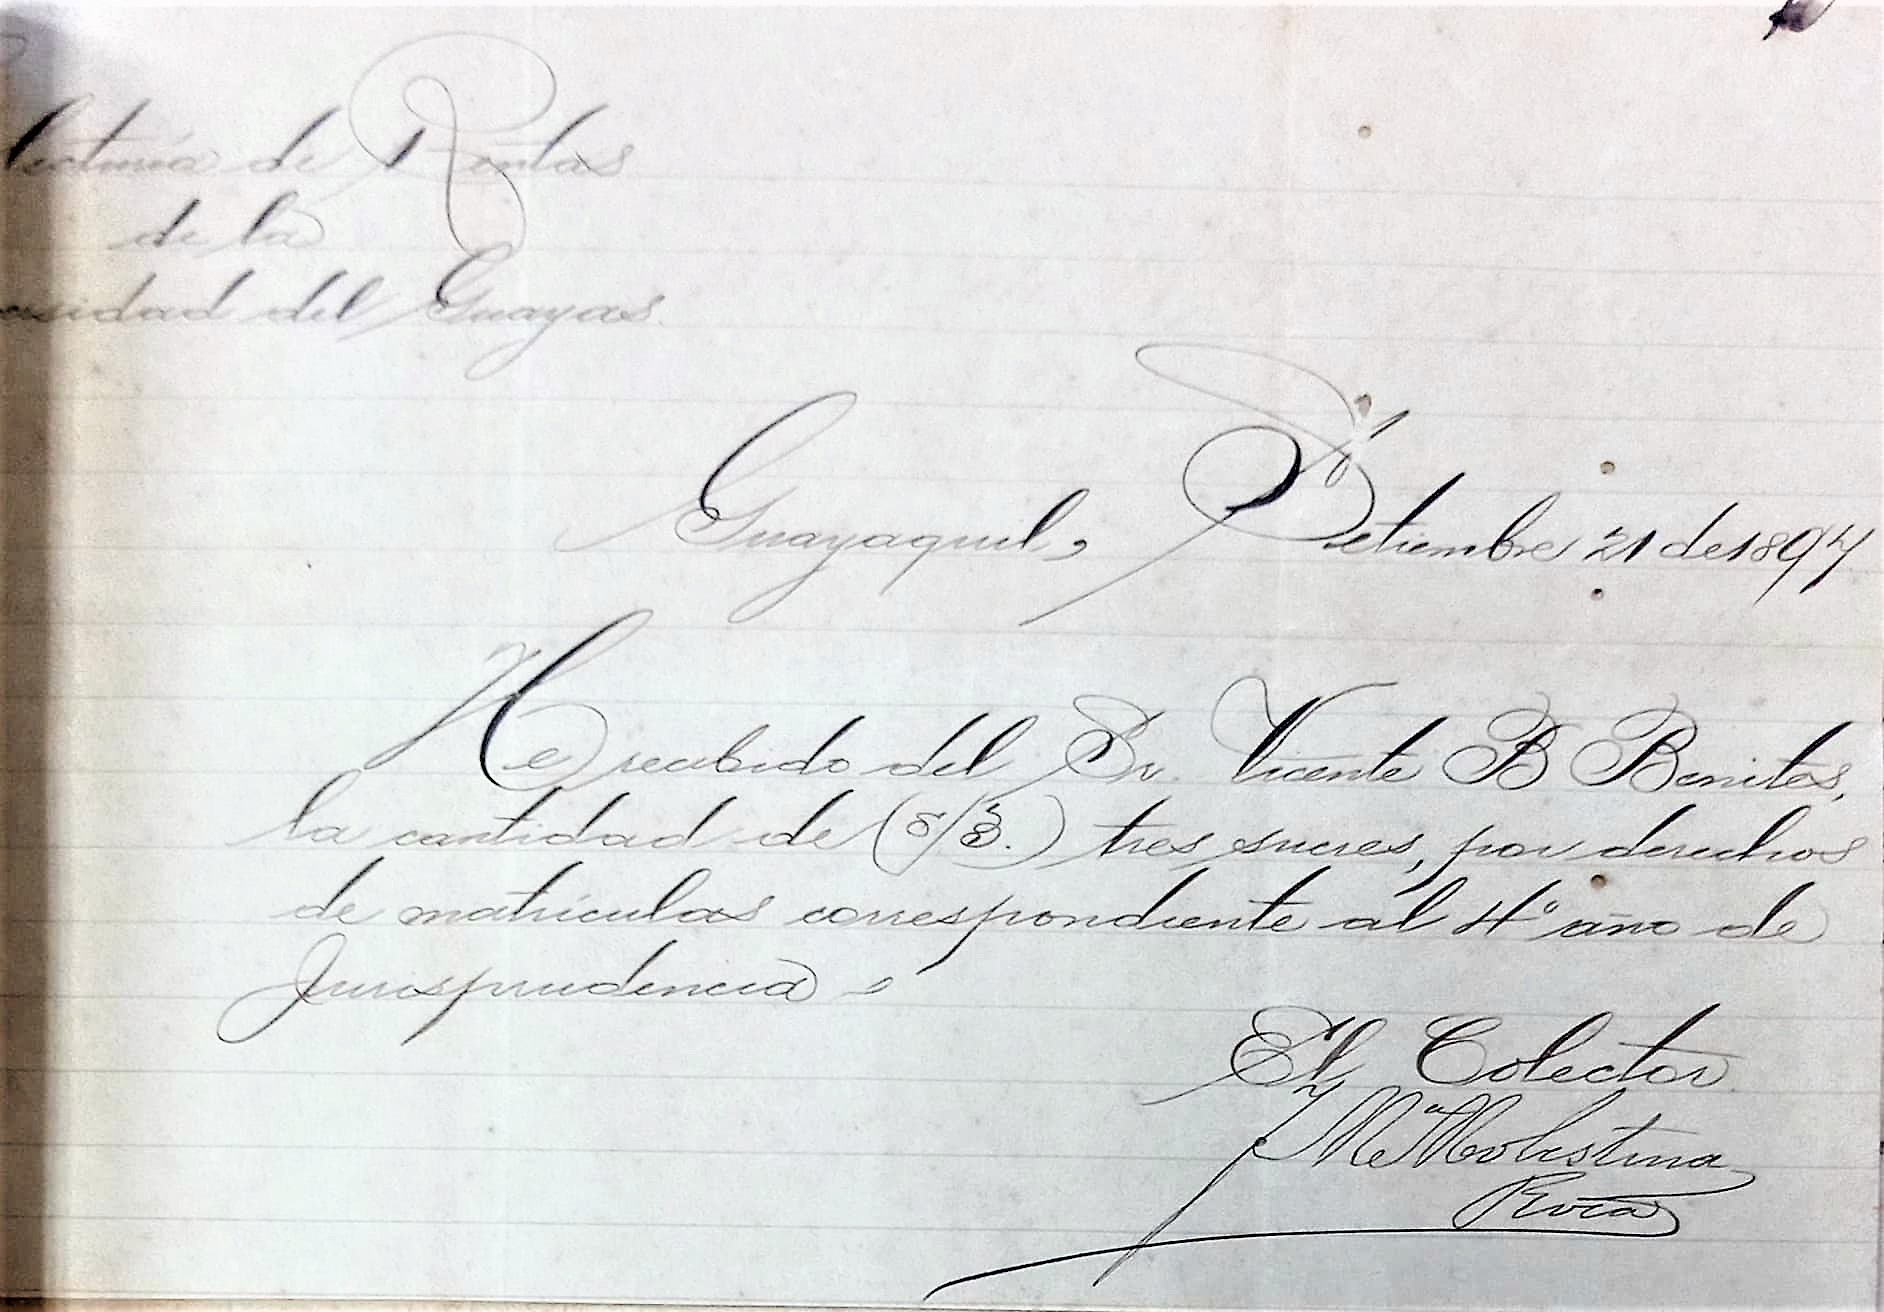 lecturía de Rentas
de la
ersidad del Guayas.
Guayaquil, Setiembre 21 de 1897
He recibido del Sr. Vicente B Benites,
la cantidad de (S/3.) tres sucres, por derechos
de matrículas correspondiente al 4º año de
Jurisprudencia.
El Colector
Molestina
Roca